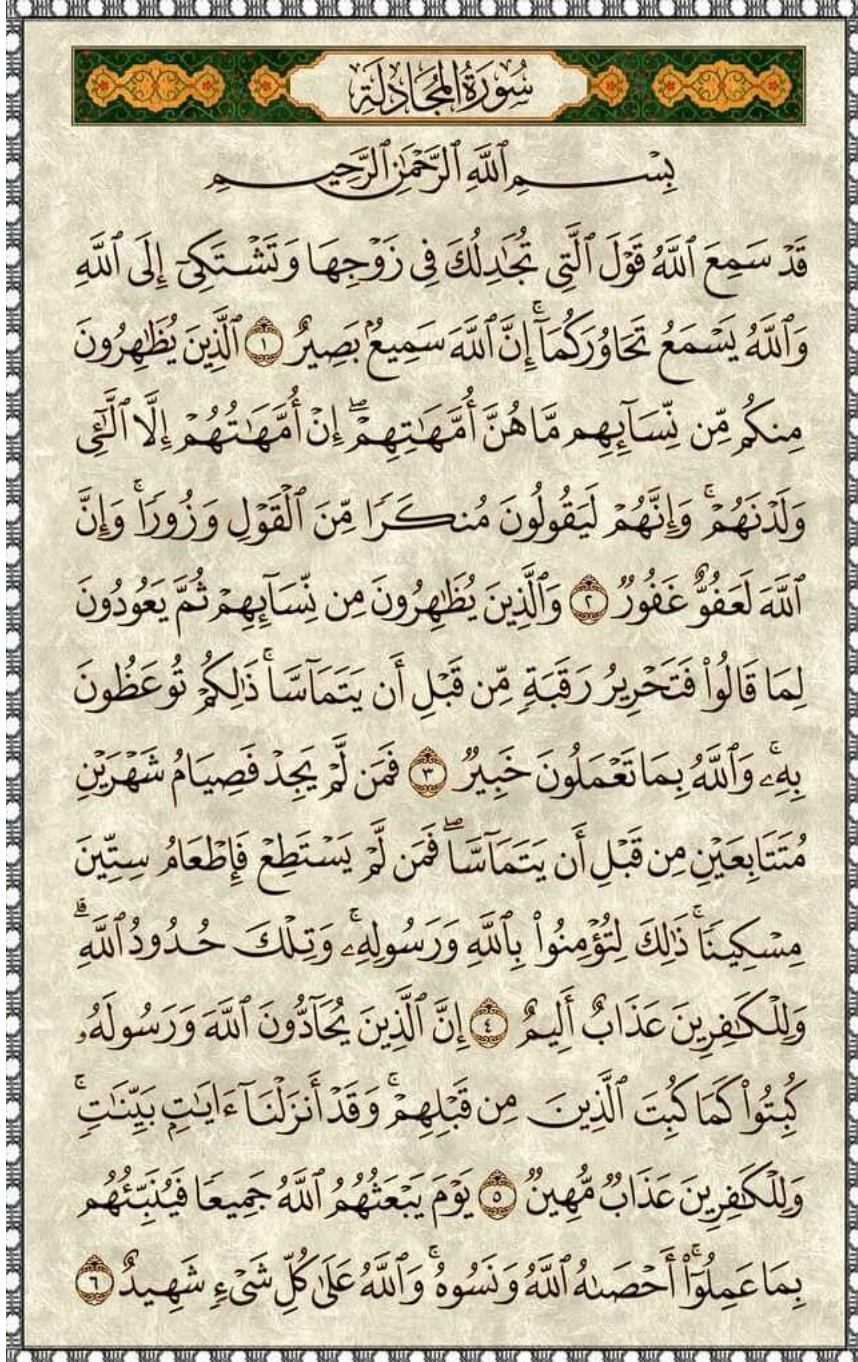 سُورَةُ المُجَادلَةِ
بِسْمِ ٱللَّهِ ٱلرَّحْمَٰنِ ٱلرَّحِيمِ
قَدْ سَمِعَ ٱللَّهُ قَوْلَ ٱلَّتِي تُجَٰدِلُكَ فِي زَوْجِهَا وَتَشْتَكِيٓ إِلَى ٱللَّهِ
وَٱللَّهُ يَسْمَعُ تَحَاوُرَكُمَآۚ إِنَّ ٱللَّهَ سَمِيعُۢ بَصِيرٌ ١ ٱلَّذِينَ يُظَٰهِرُونَ
مِنكُم مِّن نِّسَآئِهِم مَّا هُنَّ أُمَّهَٰتِهِمْۖ إِنْ أُمَّهَٰتُهُمْ إِلَّا ٱلَّٰٓـِٔي
وَلَدْنَهُمْۚ وَإِنَّهُمْ لَيَقُولُونَ مُنكَرًا مِّنَ ٱلْقَوْلِ وَزُورًاۚ وَإِنَّ
ٱللَّهَ لَعَفُوٌّ غَفُورٌ ٢ وَٱلَّذِينَ يُظَٰهِرُونَ مِن نِّسَآئِهِمْ ثُمَّ يَعُودُونَ
لِمَا قَالُوا۟ فَتَحْرِيرُ رَقَبَةٍ مِّن قَبْلِ أَن يَتَمَآسَّاۚ ذَٰلِكُمْ تُوعَظُونَ
بِهِۦۚ وَٱللَّهُ بِمَا تَعْمَلُونَ خَبِيرٌ ٣ فَمَن لَّمْ يَجِدْ فَصِيَامُ شَهْرَيْنِ
مُتَتَابِعَيْنِ مِن قَبْلِ أَن يَتَمَآسَّاۖ فَمَن لَّمْ يَسْتَطِعْ فَإِطْعَامُ سِتِّينَ
مِسْكِينًاۚ ذَٰلِكَ لِتُؤْمِنُوا۟ بِٱللَّهِ وَرَسُولِهِۦۚ وَتِلْكَ حُدُودُ ٱللَّهِۗ
وَلِلْكَٰفِرِينَ عَذَابٌ أَلِيمٌ ٤ إِنَّ ٱلَّذِينَ يُحَآدُّونَ ٱللَّهَ وَرَسُولَهُۥ
كُبِتُوا۟ كَمَا كُبِتَ ٱلَّذِينَ مِن قَبْلِهِمْۚ وَقَدْ أَنزَلْنَآ ءَايَٰتٍۭ بَيِّنَٰتٍۚ
وَلِلْكَٰفِرِينَ عَذَابٌ مُّهِينٌ ٥ يَوْمَ يَبْعَثُهُمُ ٱللَّهُ جَمِيعًا فَيُنَبِّئُهُم
بِمَا عَمِلُوٓا۟ۚ أَحْصَىٰهُ ٱللَّهُ وَنَسُوهُۚ وَٱللَّهُ عَلَىٰ كُلِّ شَىْءٍ شَهِيدٌ ٦